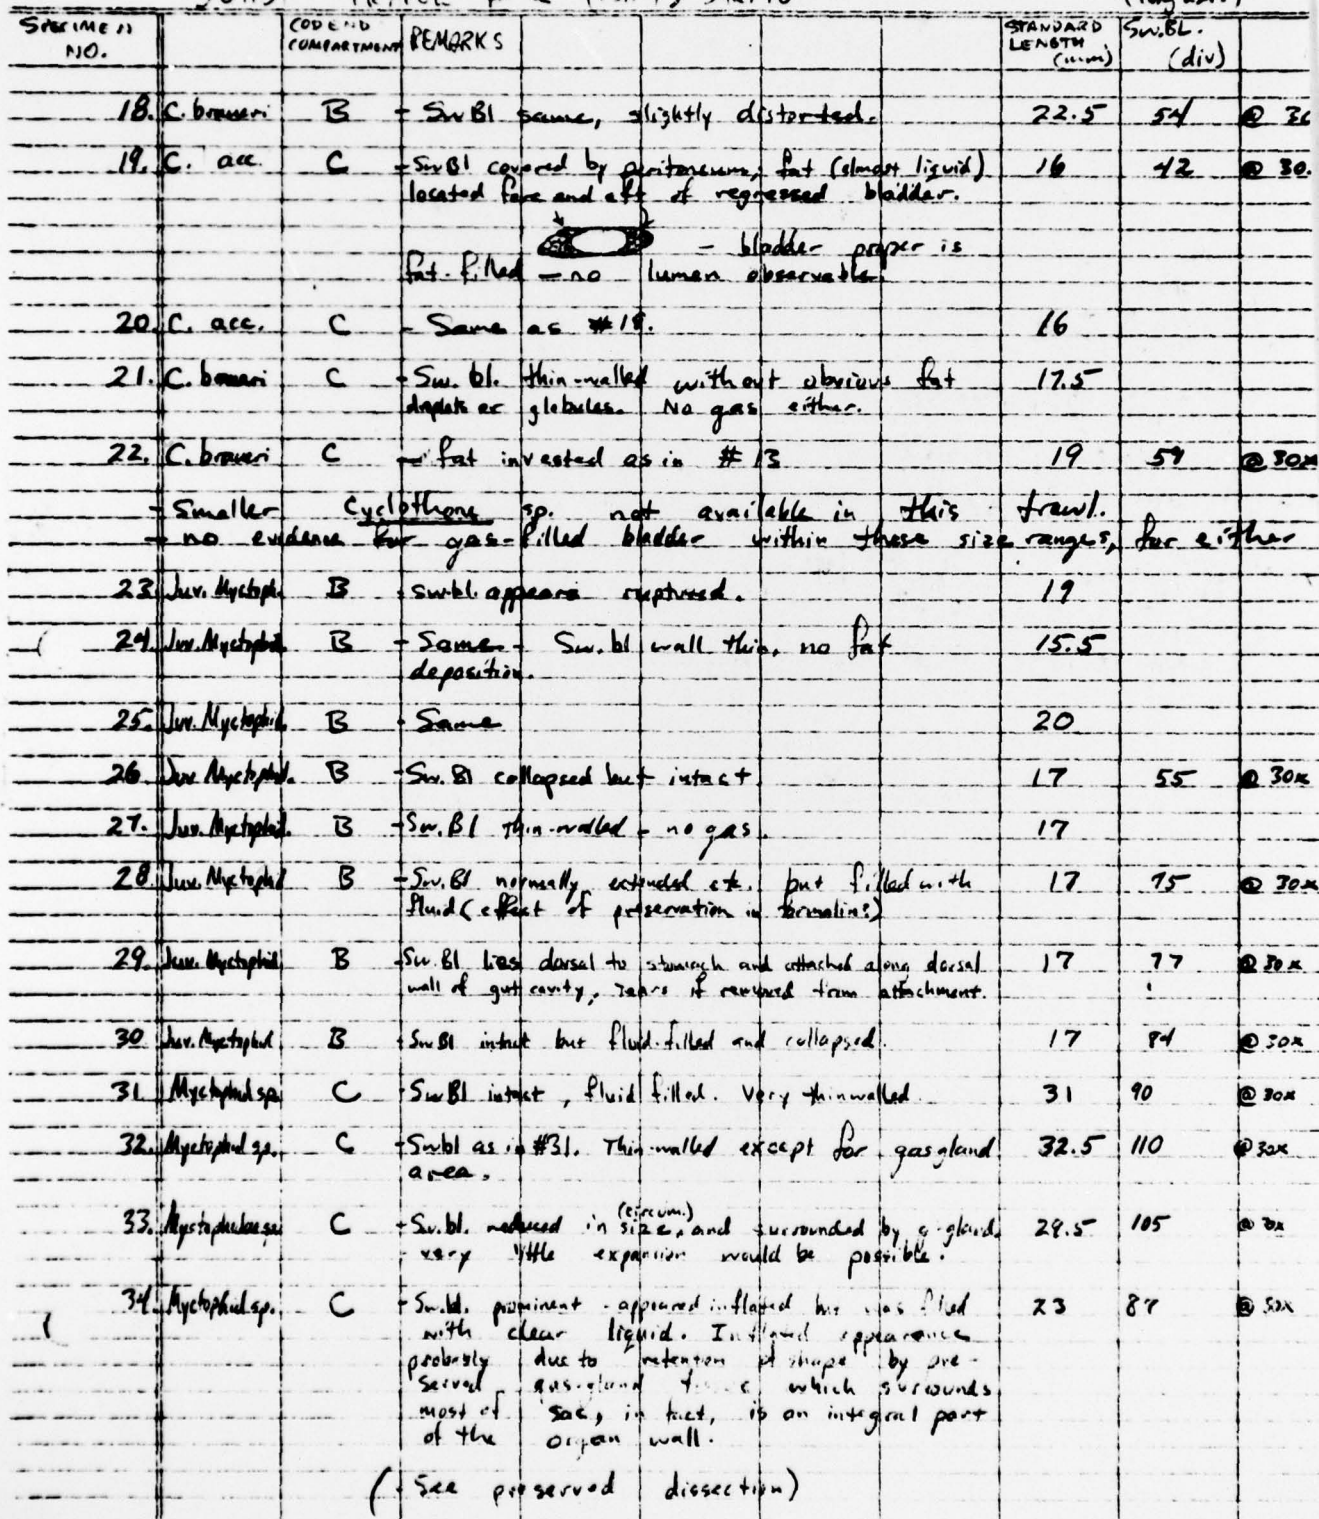 SPECIMEN NO. CODEND COMPARTMENT REMARKS STANDARD LENGTH (mm) Sw.BL. (div)
18. C. braueri B - Sw Bl same, slightly distorted. 22.5 54 @ 30
19. C. acc. C - Sw Bl covered by peritoneum, fat (almost liquid) 16 42 @ 30.
located fore and aft of regressed bladder.
- bladder proper is
fat-filled - no lumen observable.
20. C. acc. C - Same as #19. 16
21. C. braueri C - Sw. bl. thin-walled without obvious fat 17.5
droplets or globules. No gas either.
22. C. braueri C - fat invested as in #13 19 59 @ 30x
- Smaller Cyclothone sp. not available in this trawl.
- no evidence for gas-filled bladder within these size ranges, for either
23. Juv. Myctoph. B - sw.bl. appears ruptured. 19
24. Juv. Myctophid. B - Same - Sw. bl wall thin, no fat 15.5
deposition.
25. Juv. Myctophid. B - Same 20
26 Juv. Myctophid. B - Sw. Bl collapsed but intact 17 55 @ 30x
27. Juv. Myctophid. B - Sw. Bl thin-walled - no gas. 17
28 Juv. Myctophid B - Sw. Bl normally extended etc. but filled with 17 75 @ 30x
fluid (effect of preservation in formalin?)
29. Juv. Myctophid B - Sw. Bl lies dorsal to stomach and attached along dorsal 17 77 @ 30x
wall of gut cavity, tears if removed from attachment.
30 Juv. Myctophid B - Sw Bl intact but fluid-filled and collapsed. 17 84 @ 30x
31 Myctophid sp. C - Sw Bl intact, fluid filled. Very thinwalled. 31 90 @ 30x
32. Myctophid sp. C - Sw bl as in #31. Thin-walled except for gas gland 32.5 110 @ 30x
area.
(circum.)
33. C - Sw. bl. reduced in size, and surrounded by g-gland. 29.5 105 @ 30x
- very little expansion would be possible.
34. Myctophid sp. C - Sw. bl. prominent - appeared inflated but was filled 23 87 @ 30x
with clear liquid. Inflated appearance
probably due to retention of shape by pre-
served gas-gland tissue which surrounds
most of sac, in fact, is an integral part
of the organ wall.
(- See preserved dissection)